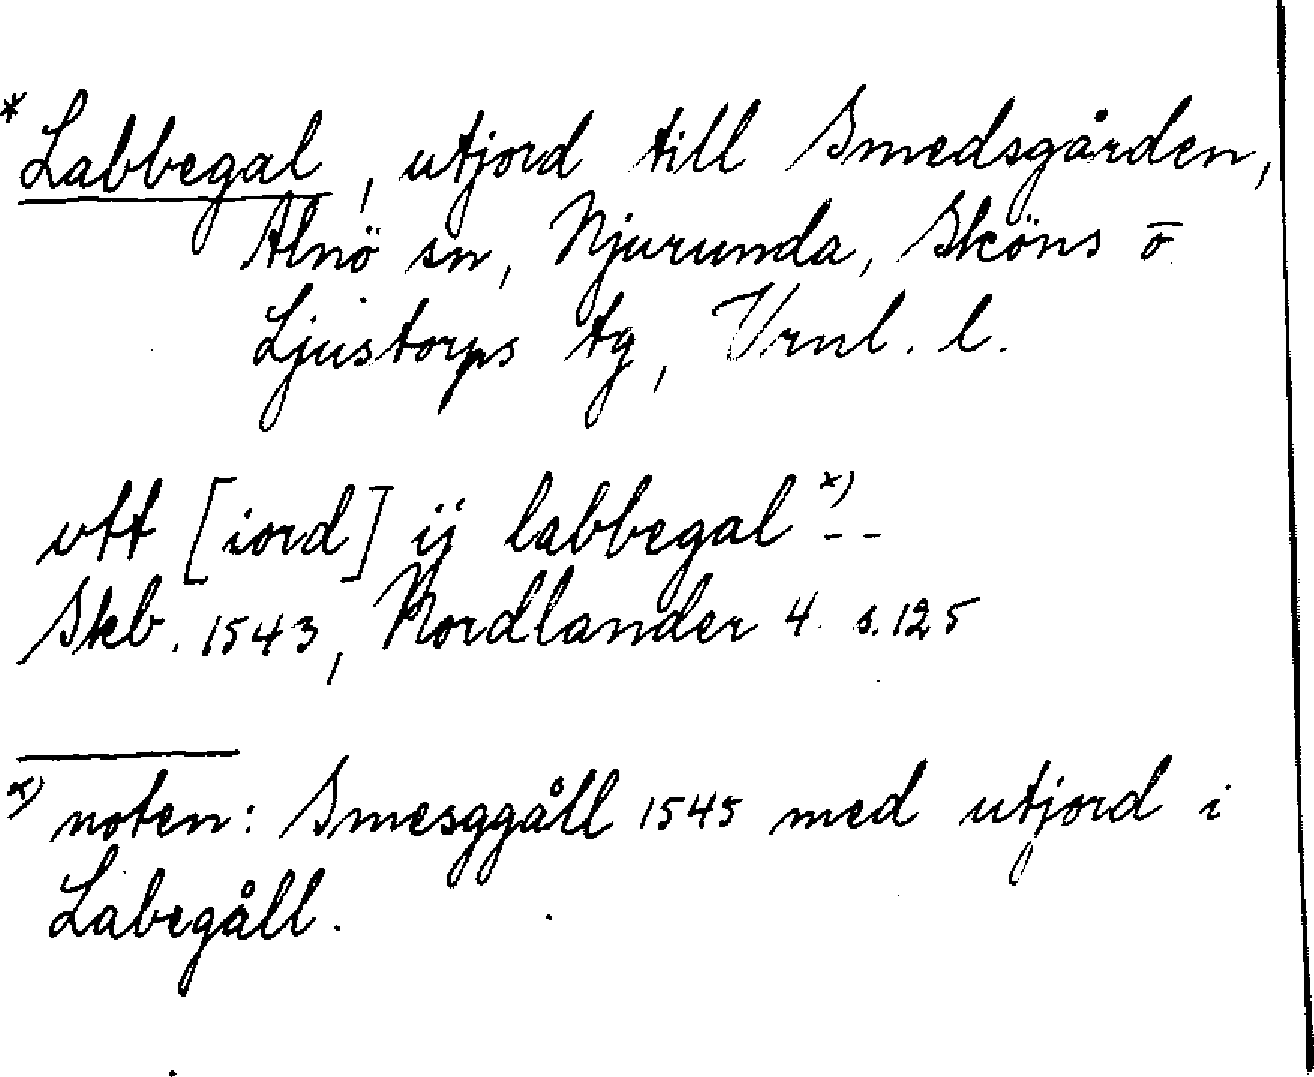 *Labbegal, utjord till Smedsgården,
Alnö sn, Njurunda, Sköns o
Ljustorps tg, Vrnl. l.
vtt [iord] ij labbegal x) - -
Skb. 1543, Nordlander 4. s. 125
x) noten: Smesggåll 1545 med utjord i
Labegåll.